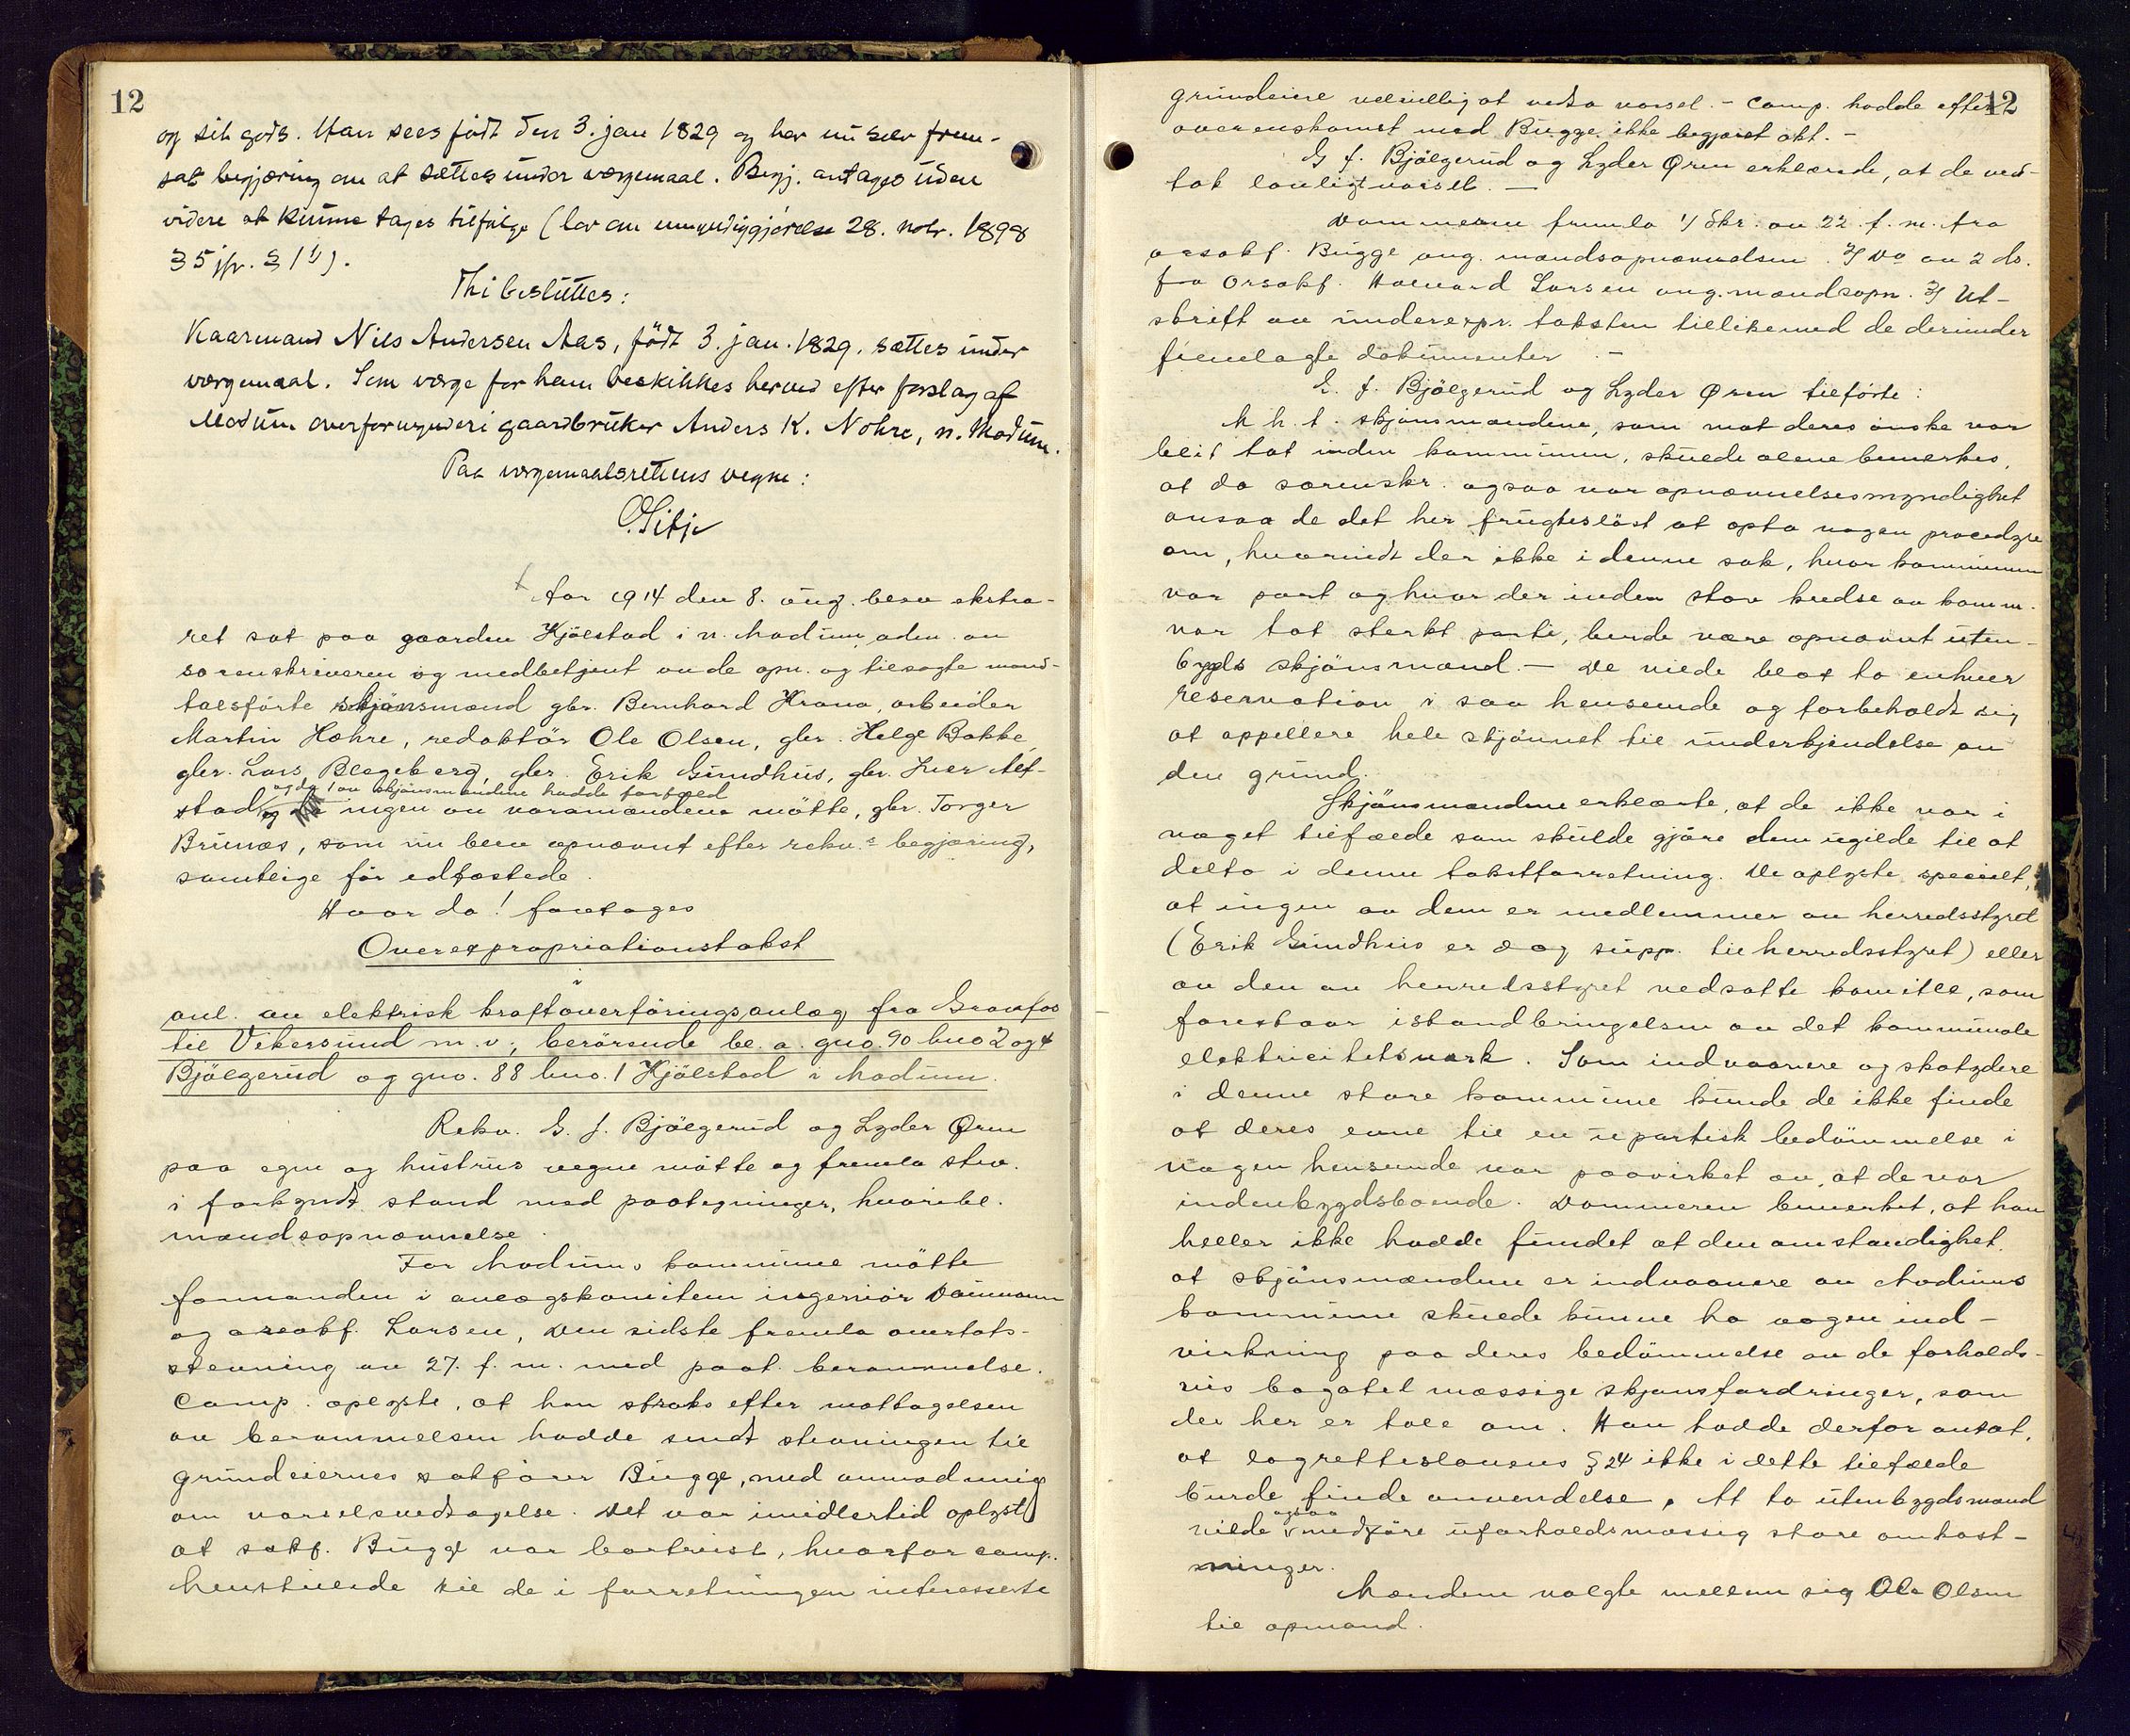 12
og sit gods. Han sees født den 3. jan 1829 og har nu selv frem-
sat begjæring om at sættes under værgemaal. Begj. antages uden
videre at kunne tages tilfølge (lov om umyndiggjørelse 28. novbr. 1898
§ 5 jfr. § 1 b).
Thi besluttes:
Kaarmand Nils Andersen Aas, født 3. jan. 1829, sættes under
værgemaal. Som værge for ham beskikkes herved efter forslag af
Modum overformynderi gaardbruker Anders K. Nohre, n. Modum.
Paa værgemaalsrettens vegne:
Aar 1914 den 8. aug. blev ekstra-
ret sat paa gaarden Hjölstad i n. Modum, adm. av
sorenskriveren og medbetjent av de opn. og tilsagte mand-
talsförte skjönsmænd gbr. Bernhard Hrana, arbeider
Martin Hæhre, redaktör Ole Olsen, gbr. Helge Bakke,
gbr. Lars Blegeberg, gbr. Erik Gundhus, gbr. Iver Alf-
og da 1 av skjönsmændene hadde forfald
stad og ingen av varamændene mötte, gbr. Torger
Brunæs, som nu blev opnævnt efter rekv.s begjæring,
samtlige för edfæstede.
Hvor da! foretages
Overexpropriationstakst
i
anl. av elektrisk kraftoverföringsanlæg fra Gravfos
til Vikersund m. v., berörende bl. a. gno. 90 bno 2 og 4
Bjölgerud og gno. 88 bno. 1 Hjölstad i Modum.
Rekv. G. J. Bjölgerud og Lyder Øren
paa egne og hustrus vegne mötte og fremla stev.
i forkyndt stand med paategninger, hvoribl.
mandsopnævnelse.
For Modums kommune mötte
formanden i anlægskomiteen ingeniör Daumann
og orsakf. Larsen, den sidste fremla overtakst-
stevning av 27. f. m. med paat. berammelse.
Comp. oplyste, at han straks efter mottagelsen
av berammelsen hadde sendt stevningen til
grundeiernes sakförer Bugge, med anmodning
om varselsvedtagelse. Det var imidlertid oplyst
at sakf. Bugge var bortreist, hvorfor comp.
henstillede til de i forretningen interesserte
12
grundeiere velvilligst vedta varsel. – Comp. hadde efter
overenskomst med Bugge ikke begjæret akt. –
G. J. Bjölgerud og Lyder Øren erklærede, at de ved-
tok lovligt varsel. –
Dommeren fremla 1/ Skr. av 22. f. m. fra
orsakf. Bugge ang. mandsopnævnelsen. 2/ Do av 2 ds.
fra Orsakf. Halvard Larsen ang. mandsopn. 3/ Ut-
skrift av underexpr. taksten tillikemed de derunder
fremlagte dokumenter. –
G. J. Bjölgerud og Lyder Øren tilförte:
M. h. t. skjönsmændene, som mot deres önske var
blit tat inden kommunen, skulde alene bemerkes,
at da sorenskr. ogsaa var opnævnelsesmyndighet
ansaa de det her frugtesløst at opta nogen procedyre
om, hvorvidt der ikke i denne sak, hvor kommunen
var part og hvor der inden store kredse av komm.
var tat sterkt parti, burde være opnævnt uten-
bygds skjönsmænd. – De vilde blot ta enhver
reservation i saa henseende og forbeholdt sig
at appellere hele skjönnet til underkjendelse av
den grund.
Skjönsmændene erklærte, at de ikke var i
noget tilfælde som skulde gjöre dem ugilde til at
delta i denne takstforretning. De oplyste specielt,
at ingen av dem er medlemmer av herredsstyret
(Erik Gundhus er dog supp. til herredsstyret) eller
av den av herredsstyret nedsatte komite, som
forestaar istandbringelsen av det kommunale
elektricitetsverk. Som indvaanere og skatydere
i denne store kommune kunde de ikke finde
at deres evne til en upartisk bedömmelse i
nogen henseende var paavirket av, at de var
indenbygdsboende. Dommeren bemerket, at han
heller ikke hadde fundet at den omstændighet,
at skjönsmændene er indvaanere av Modums
kommune skulde kunne ha nogen ind-
virkning paa deres bedömmelse av de forholds-
vis bagatelmæssige skjönsfordringer, som
der her er tale om. Han hadde derfor antat,
at lagretteslovens § 24 ikke i dette tilfælde
burde finde anvendelse. At ta utenbygdsmænd
ogsaa
vilde medföre uforholdsmæssig store omkost-
ninger.
Mændene valgte mellem sig Ole Olsen
til opmand.